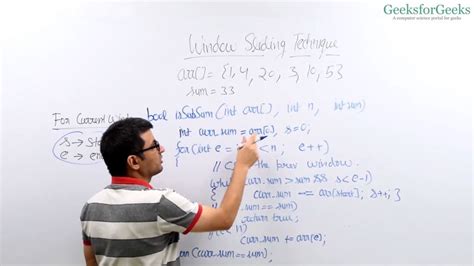 GeeksforGeeks
A computer science portal for geeks
Window Sliding Technique
arr[] = {1, 4, 20, 3, 10, 5}
sum = 33
For Current
s → sta
e → en
bool isSubSum (int arr[], int n, int sum)
int curr_sum = arr[0], s=0;
for(int e = < n ; e++)
{
the prev window.
while curr_sum > sum && s < e-1)
{ curr_sum -= arr[start]; s++; }
sum == sum)
return true;
n)
curr_sum += arr[e];
(curr_sum == sum);